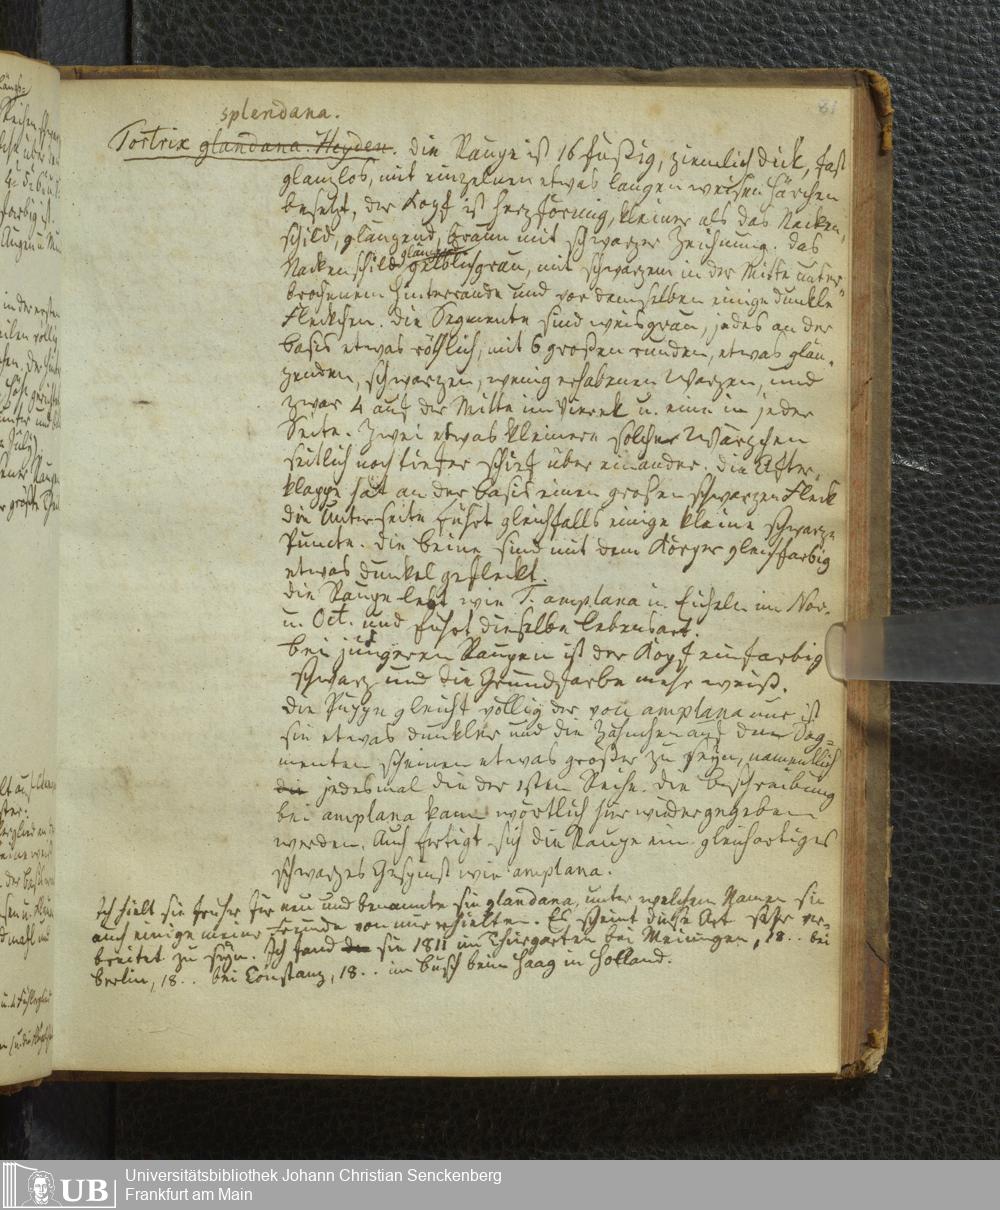 81
splendana.
Tortrix glandana. Heyden. Die Raupe ist 16 füßig, ziemlich dick, fast
glanzlos, mit einzelnen etwas langen weißen Härchen
besetzt, der Kopf ist herzförmig, kleiner als das Nacken-
schild, glänzend, braun mit schwarzer Zeichnung. Das
Nackenschild glänzend gelblichgrau, mit schwarzem in der Mitte unter-
brochenem Hinterrande und vor demselben einige dunkle
Fleckchen. Die Segmente sind weisgrau, jedes an der
Basis etwas röthlich, mit 6 großen runden, etwas glän-
zenden, schwarzen, wenig erhabenen Warzen, und
zwar 4 auf der Mitte im Viereck u. eine in jeder
Seite. Zwei etwas kleinere solcher Wärzchen
seitlich noch tiefer schief über einander. Die After-
klappe hat an der Basis einen großen schwarzen Fleck
die Unterseite führt gleichfalls einige kleine schwarze
Puncte. Die Beine sind mit dem Körper gleichfarbig
etwas dunkel gefleckt.
Die Raupe lebt wie T. amplana in Eicheln im
u. Oct. und führt dieselbe Lebensart.
Bei jüngeren Raupen ist der Kopf einfarbig
schwarz und die Grundfarbe mehr weiß.
Die Puppe gleicht völlig der von amplana nur ist
sie etwas dunkler und die Zähnchen auf den Seg-
menten scheinen etwas großer zu seyn, namentlich
die jedesmal die der 1sten Reihe. Die Beschreibung
bei amplana kann wörtlich hier wiedergegeben
werden. Auch fertigt sich die Raupe ein gleichartiges
schwarzes Gespinst wie amplana.
Ich hielt sie früher für neu und benannte sie glandana, unter welchem Namen sie
auch einige meiner Freunde von mir erhielten. Es scheint diese Art sehr ver-
breitet zu seyn. Ich fand sie 1811 im Thiergarten bei Meiningen, 18.. bei
Berlin, 18.. bei Constanz, 18.. im Busch beim Haag in Holland.
UB
Universitätsbibliothek Johann Christian Senckenberg
Frankfurt am Main